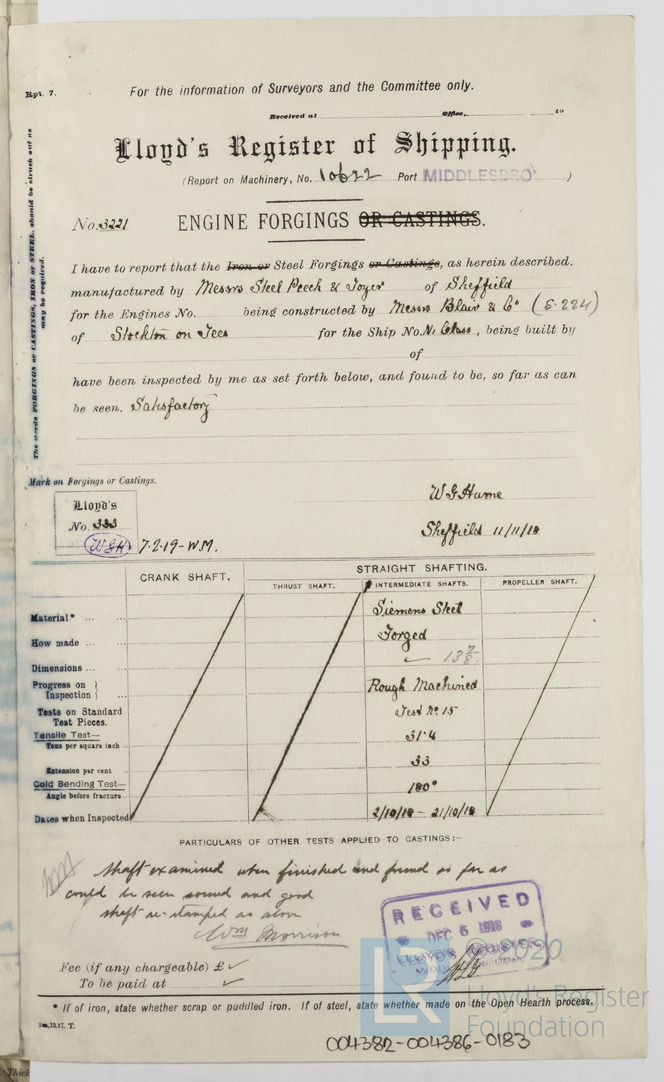 Rpt. 7.
For the information of Surveyors and the Committee only.
Received at Office, 19
Lloyd's Register of Shipping.
(Report on Machinery, No. 10622 Port MIDDLESBRO' )
No. 3221
ENGINE FORGINGS OR CASTINGS.
The words FORGINGS or CASTINGS, IRON or STEEL, should be struck out as
may be required.
I have to report that the Iron or Steel Forgings or Castings, as herein described.
manufactured by Messrs Steel Peech & Tozer of Sheffield
for the Engines No. being constructed by Messrs Blair & Co (S.224)
of Stockton on Tees for the Ship No. N. Class, being built by
of
have been inspected by me as set forth below, and found to be, so far as can
be seen, Satisfactory
Mark on Forgings or Castings.
Lloyd's
No. 333
WGH 7.2.19-W.M.
W G Hume
Sheffield 11/11/18
CRANK SHAFT.
STRAIGHT SHAFTING.
THRUST SHAFT. INTERMEDIATE SHAFTS. PROPELLER SHAFT.
Material* ... ... Siemens Steel
How made ... ... Forged
Dimensions ... ... 13 7/8
Progress on Inspection } Rough Machined
Tests on Standard Test Pieces. Test No 15
Tensile Test—
Tons per square inch ... 31.4
Extension per cent 33
Cold Bending Test—
Angle before fracture ... 180°
Dates when Inspected 2/10/18 - 21/10/18
PARTICULARS OF OTHER TESTS APPLIED TO CASTINGS:-
Shaft examined when finished and found as far as
could be seen sound and good
shaft re-stamped as above
Wm Morrison
RECEIVED
DEC 5 1918
LLOYD'S REGISTER
Fee (if any chargeable) £ ✓
To be paid at ✓
* If of iron, state whether scrap or puddled iron. If of steel, state whether made on the Open Hearth process.
LR
©2020
Lloyd's Register
Foundation
004382-004386-0183
Thick